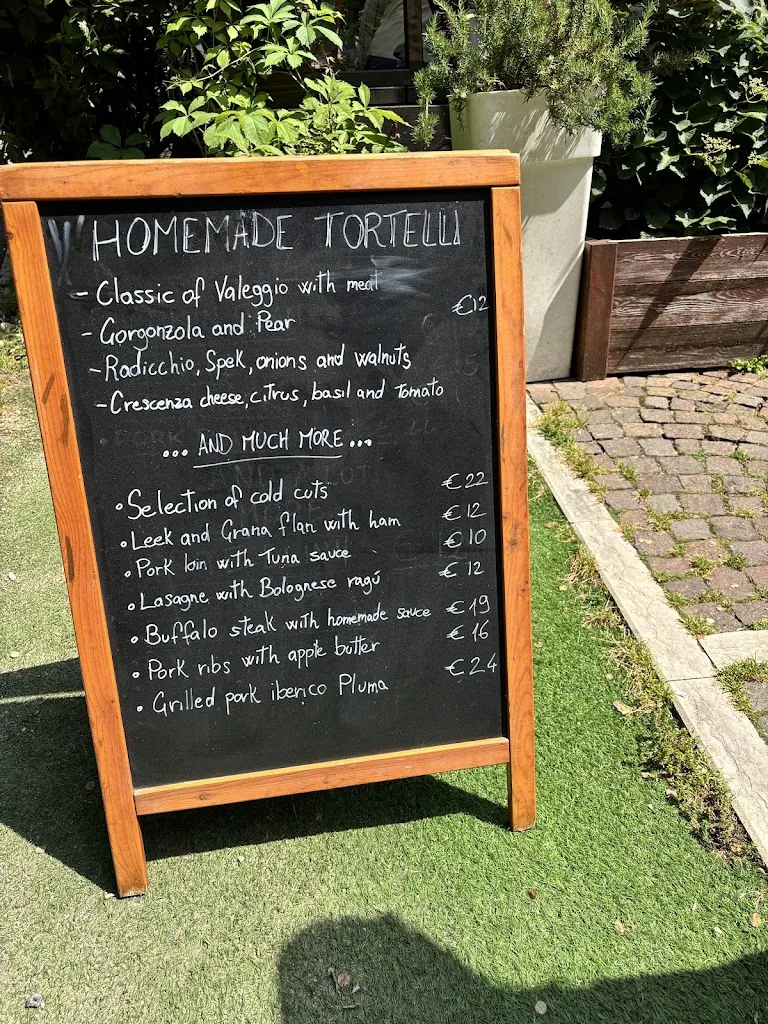 HOMEMADE TORTELLI
- Classic of Valeggio with meat
€12
- Gorgonzola and Pear
- Radicchio, Spek, onions and walnuts
- Crescenza cheese, citrus, basil and Tomato
... AND MUCH MORE ...
• Selection of cold cuts €22
• Leek and Grana flan with ham €12
• Pork loin with Tuna sauce €10
• Lasagne with Bolognese ragú €12
• Buffalo steak with homemade sauce €19
• Pork ribs with apple butter €16
• Grilled pork iberico Pluma €24